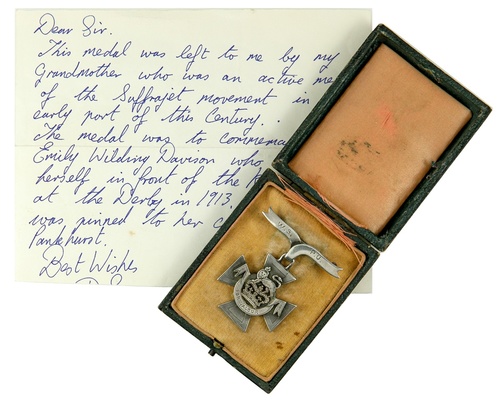 Dear Sir.
This medal was left to me by my
Grandmother who was an active me
of the Suffrajet movement in
early part of this Century..
The medal was to commemo
Emily Wilding Davison who
herself in front of the
at the Derby in 1913.
was pinned to her c
Pankhurst.
Best Wishes